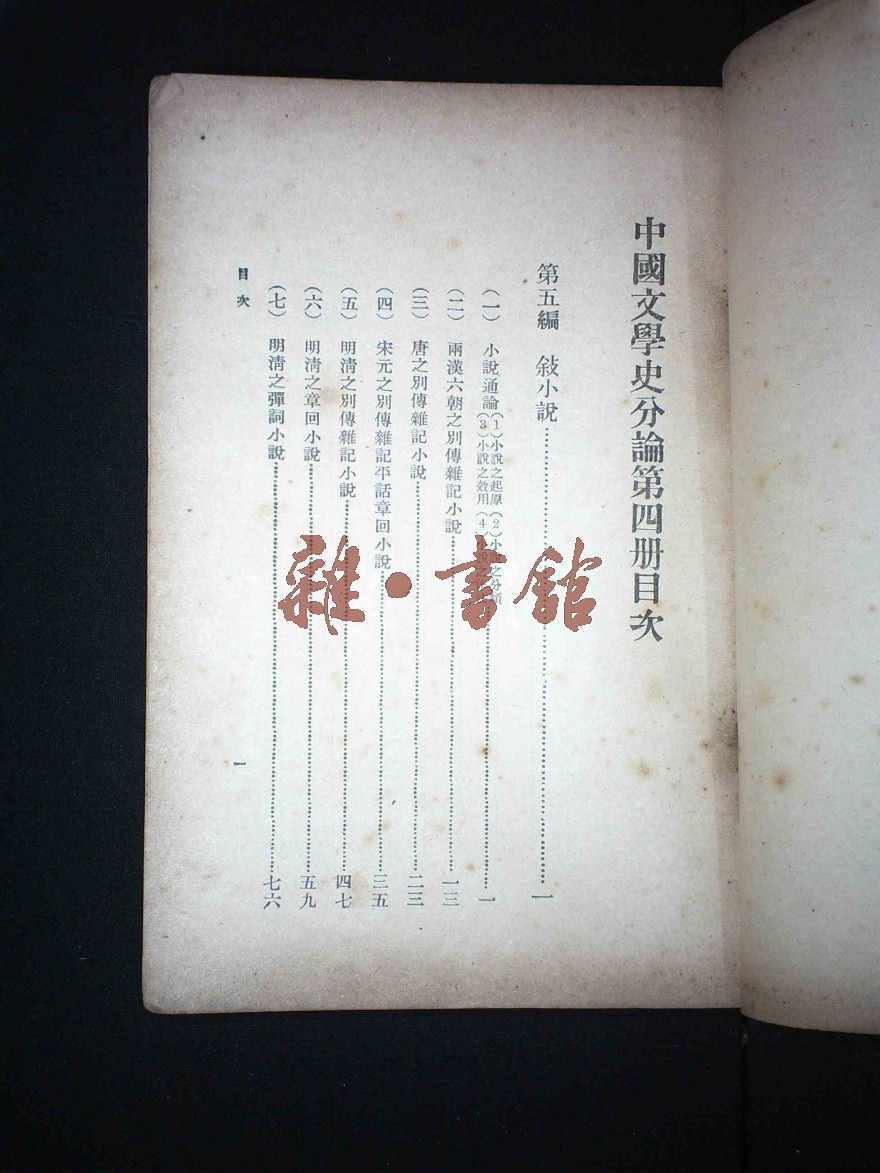 中國文學史分論第四册目次
第五編　敍小說……一
(一)　小說通論(1)小說之起原(2)小說之分類
(3)小說之效用(4)小說之……一
(二)　兩漢六朝之別傳雜記小說……一三
(三)　唐之別傳雜記小說……二三
(四)　宋元之別傳雜記平話章回小說……三五
(五)　明清之別傳雜記小說……四七
(六)　明清之章回小說……五九
(七)　明清之彈詞小說……七六
目次
一
雜·書館